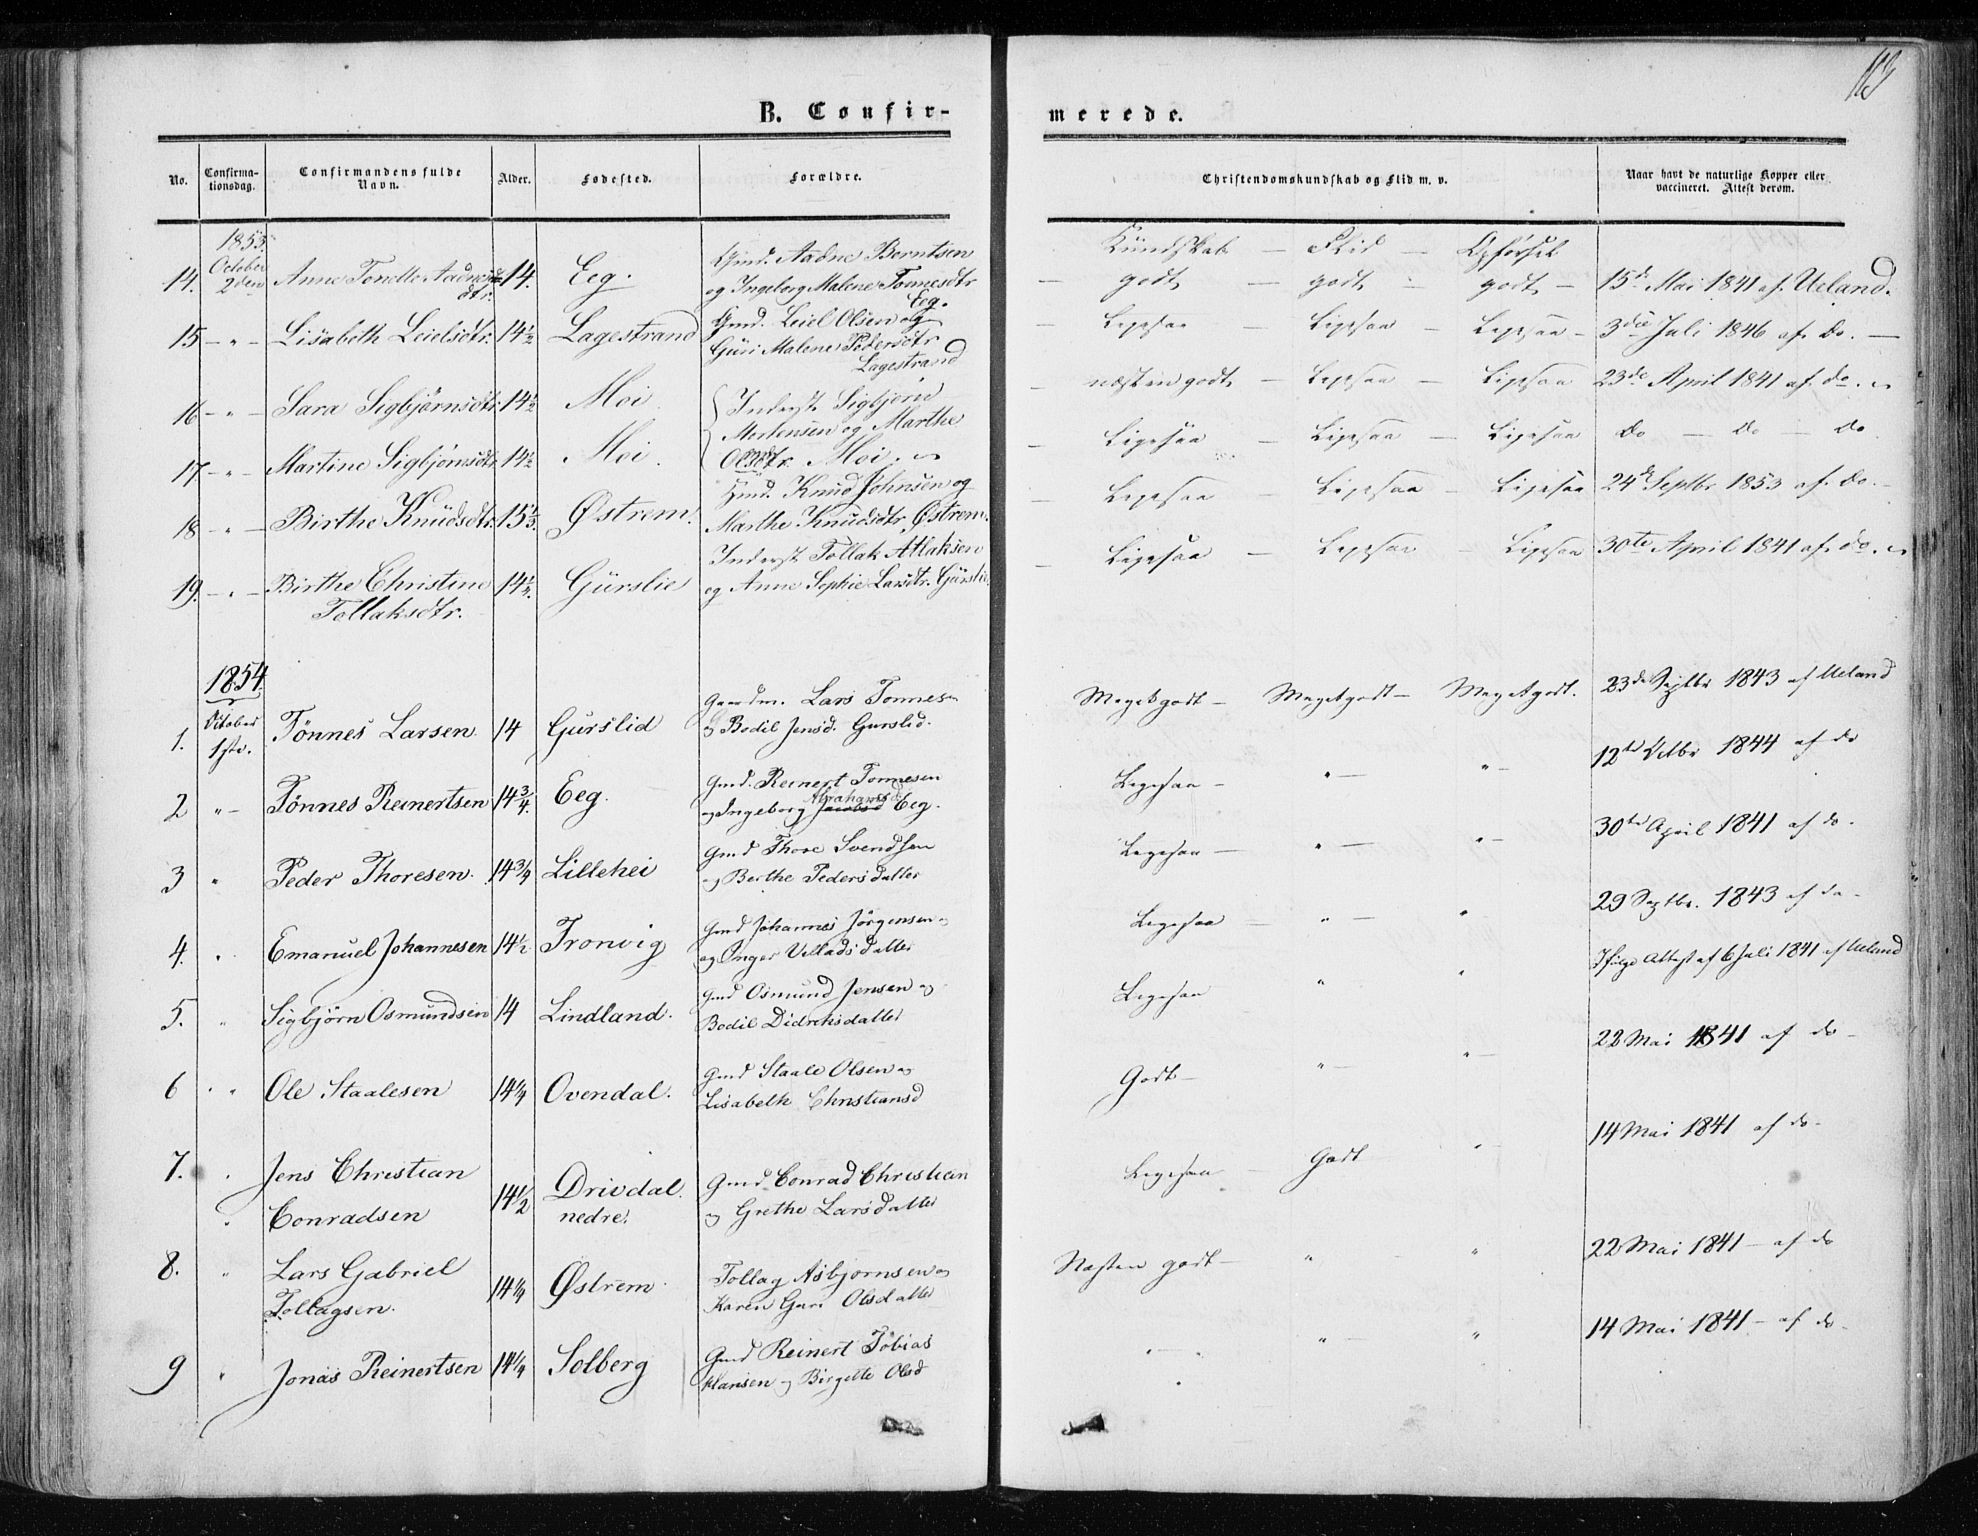 B. Confir-
merede.
No.
Confirma-
tionsdag.
Confirmandens fulde
Navn.
Alder.
Fødested.
Forældre.
Christendomskundskab og Flid m. v.
Naar havt de naturlige Kopper eller
vaccineret. Attest derom.
1853.
Kundskab — Flid — Opførsel
October
2den
14. Anne Tonette Aadnes
dtr. 14. Eeg. Gmd. Aadne Berntsen
og Ingeborg Malene Tønnesdtr
Eeg.
— godt — godt — godt — 15de Mai 1841 af Ueland.
15 — " — Lisabeth Leielsdtr. 14½ Lagestrand Gmd. Leiel Olsen og
Guri Malene Pedersdtr
Lagestrand
— Ligesaa — Ligesaa — Ligesaa — 3die Juli 1846 af do. —
16 — " — Sara Sigbjørnsdtr. 14½ Moi Inderst Sigbjørn
Mortensen og Marthe
Olsdtr. Moi.
— næsten godt — Ligesaa — Ligesaa 23de April 1841 af do.
17 — " — Martine Sigbjørnsdtr. 14½ Moi.
— Ligesaa — Ligesaa — Ligesaa do — do — do
18 — " — Birthe Knudsdtr. 15⅓. Østrem. Gmd. Knud Johnsen og
Marthe Knudsdtr. Østrem.
— Ligesaa — Ligesaa — Ligesaa 24de Septbr 1853 af do. —
19. — " — Birthe Christine
Tollaksdtr. 14½. Gurslie Inderst Tollak Atlaksen
og Anne Sophie Larsdtr. Gurslie
— Ligesaa — Ligesaa — Ligesaa 30te April 1841 af do.
1854.
October
1ste.
1. Tönnes Larsen. 14 Gurslid Gaardm. Lars Tonnesen
og Bodil Jensd. Gurslid.
Megetgodt — Megetgodt — Megetgodt. 23de Septbr 1843 af Ueland
2 " — Tönnes Reinertsen 14¾. Eeg. Gmd. Reinert Tonnesen
Abrahamsd
og Ingeborg Jacobsd Eeg.
Ligesaa — " — " — 12te Octbr 1844 af do
3 " Peder Thoresen. 14¾ Lillehei Gmd Thore Svendsen
og Berthe Pedersdatter
Ligesaa — " — " — 30te April 1841 af do.
4. " Emanuel Johannesen 14½ Tronvig Gmd Johannes Jörgensen
og Inger Velladsdatter
Ligesaa — " — " 29 Septbr. 1843 af do —
5. " Sigbjörn Osmundsen 14 Lindland. Gmd Osmund Jensen og
Bodil Didreksdatter
Ligesaa " " Ifölge Attest af 6 Juli 1841 af Ueland
6 " " Ole Staalesen 14¼ Ovendal. Gmd Staale Olsen og
Lisabeth Christiansd
Godt — " — " — 22 Mai 1841 af do —
7. " Jens Christian
" Conradsen 14½ Drivdal.
nedre. Gmd Conrad Christian
og Grethe Larsdatter
Ligesaa — Godt " — 14 Mai 1841 af do —
8. " Lars Gabriel
Tollagsen. 14¼ Østrem. Tollag Asbjornsen og
Karen Guri Olsdatter
Næsten godt — " " 22 Mai 1841 — af do
9 " Jonas Reinertsen 14¼ Solberg Gmd Reinert Tobias
Hansen og Birgitte Olsd
" — " 14 Mai 1841 — af do —